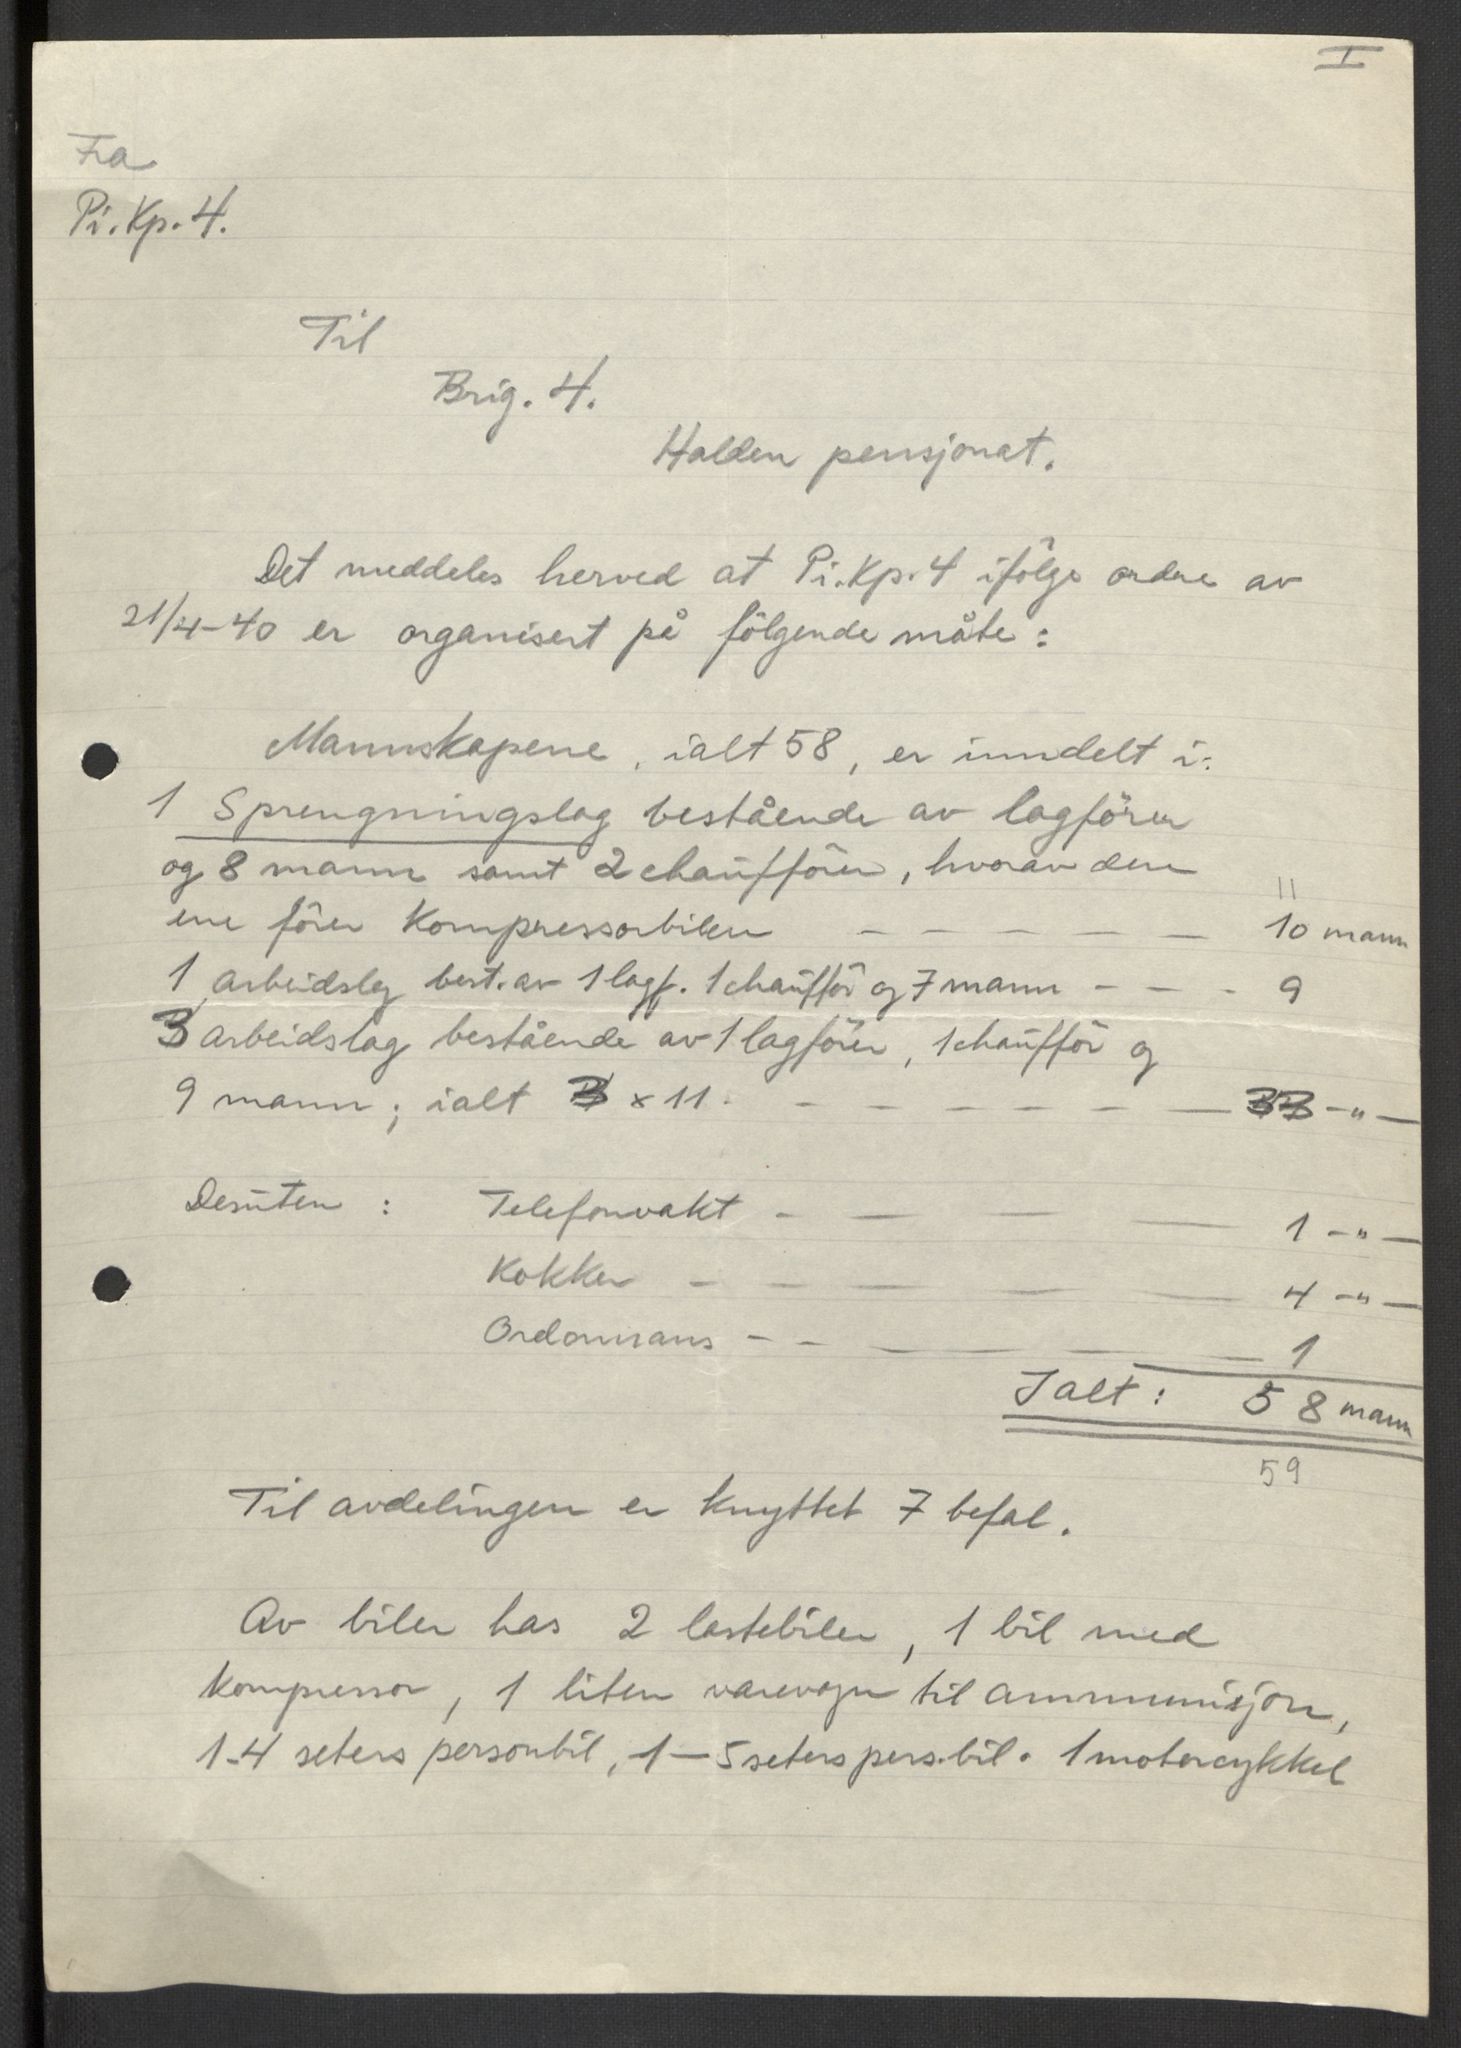 I
Fra
Pi. Kp. 4.
Til
Brig. 4.
Halden pensjonat.
Det meddeles herved at Pi. Kp. 4 ifölge ordre av
21/4-40 er organisert på fölgende måte:
Mannskapene, ialt 58, er inndelt i:
1 Sprengningslag bestående av lagförer
og 8 mann samt 2 chaufförer, hvorav den
11
ene förer kompressorbilen — — — — — 10 mann
1 arbeidslag best. av 1 lagf. 1 chaufför og 7 mann - - - 9
3 arbeidslag bestående av 1 lagförer, 1 chaufför og
9 mann; ialt 3 x 11. — — — — — — 33 -"-
Desuten : Telefonvakt - — — — 1 -"-
Kokker — — — — — 4 -"-
Ordonnans - - — — — — 1
Ialt: 58 mann
59
Til avdelingen er knyttet 7 befal.
Av biler has 2 lastebiler, 1 bil med
kompressor, 1 liten varevogn til ammunisjon,
1-4 seters personbil, 1-5 seters pers.bil. 1 motorcykkel